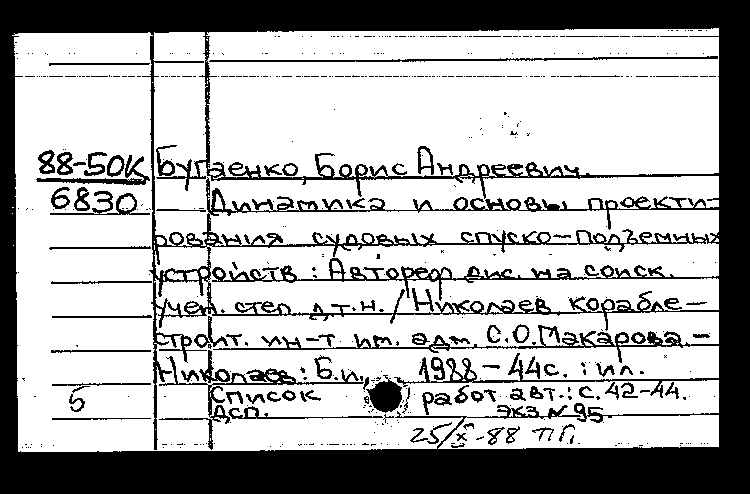 88-50К Бугаенко, Борис Андреевич.
6830 Динамика и основы проекти-
рования судовых спуско-подъемных
устройств : Автореф. дис. на соиск.
учен. степ. д.т.н. / Николаев. корабле-
строит. ин-т им. адм. С.О.Макарова. -
Николаев : Б.и., 1988 - 44с. : ил.
5 Список работ авт.: с. 42-44.
ДСП. экз. № 95.
25/X-88 ПП.